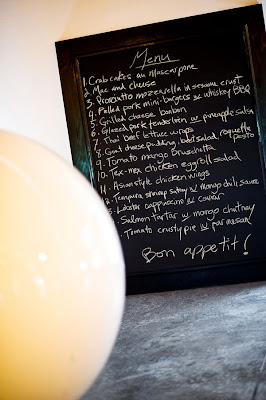 Menu
1. Crab cakes au mascarpone
2. Mac and cheese
3. Prosciutto mozzarella in sesame crust
4. Pulled pork mini-burgers w whiskey BBQ
5. Grilled cheese bonbon
6. Glazed pork tenderloin w pineapple salsa
7. Thai beef lettuce wraps
8. Goat cheese pudding, beet salad, roquette pesto
9. Tomato mango Bruschetta
10. Tex-mex chicken eggroll salad
11. Asian style chicken wings
Tempura shrimp satay w mango chili sauce
Lobster cappuccino w caviar
Salmon tartar w mango chutney
Tomato crusty pie w parmesan
Bon appetit!